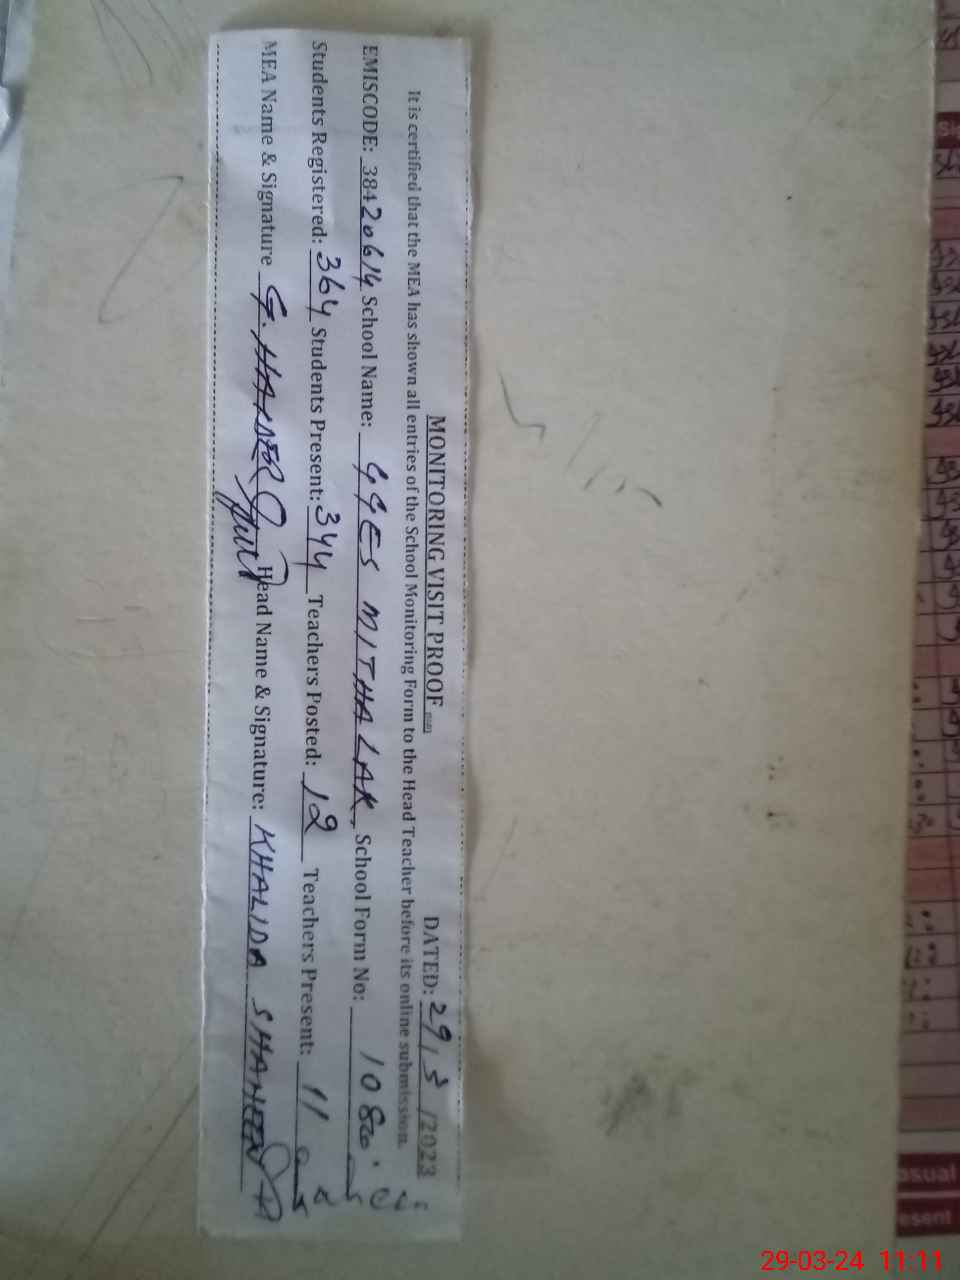 MONITORING VISIT PROOF DATED: 29/3/2023
It is certified that the MEA has shown all entries of the School Monitoring Form to the Head Teacher before its online submission.
EMISCODE: 38420614 School Name: GGES MITHALAK. School Form No: 1080
Students Registered: 364 Students Present: 344 Teachers Posted: 12 Teachers Present: 11
MEA Name & Signature G. HAIDER Head Name & Signature: KHALIDA SHAHEEN
29-03-24 11:11